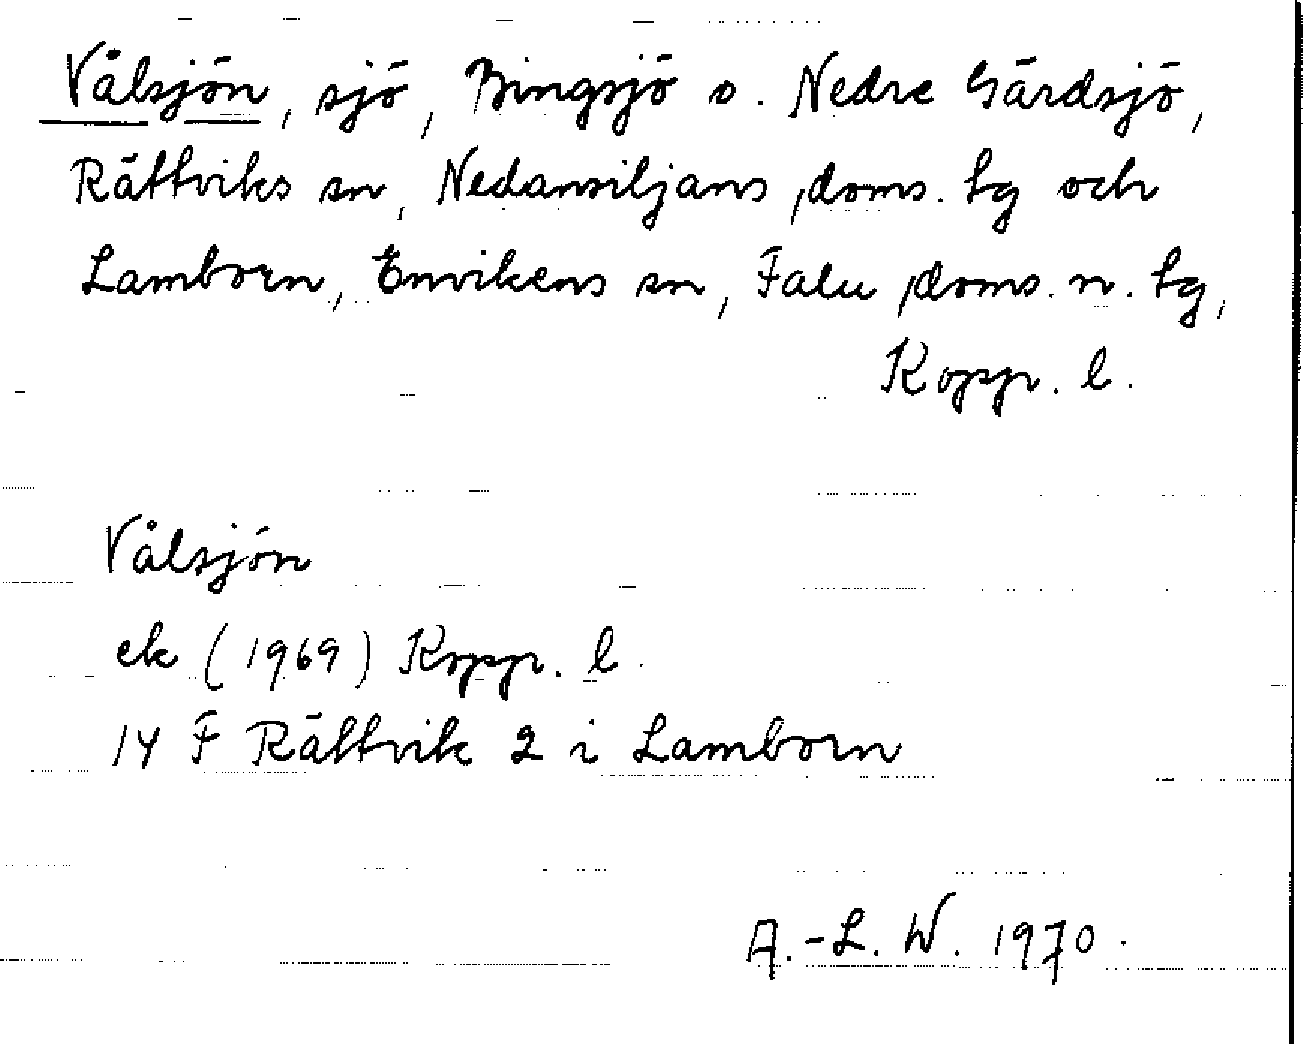 Vålsjön, sjö, Bingsjö o. Nedre Gärdsjö,
Rättviks sn, Nedansiljans doms. tg och
Lamborn, Envikens sn, Falu doms. n. tg,
Kopp. l.
Vålsjön
ek (1969) Kopp. l.
14 F Rättvik 2 i Lamborn
A.-L. W. 1970.